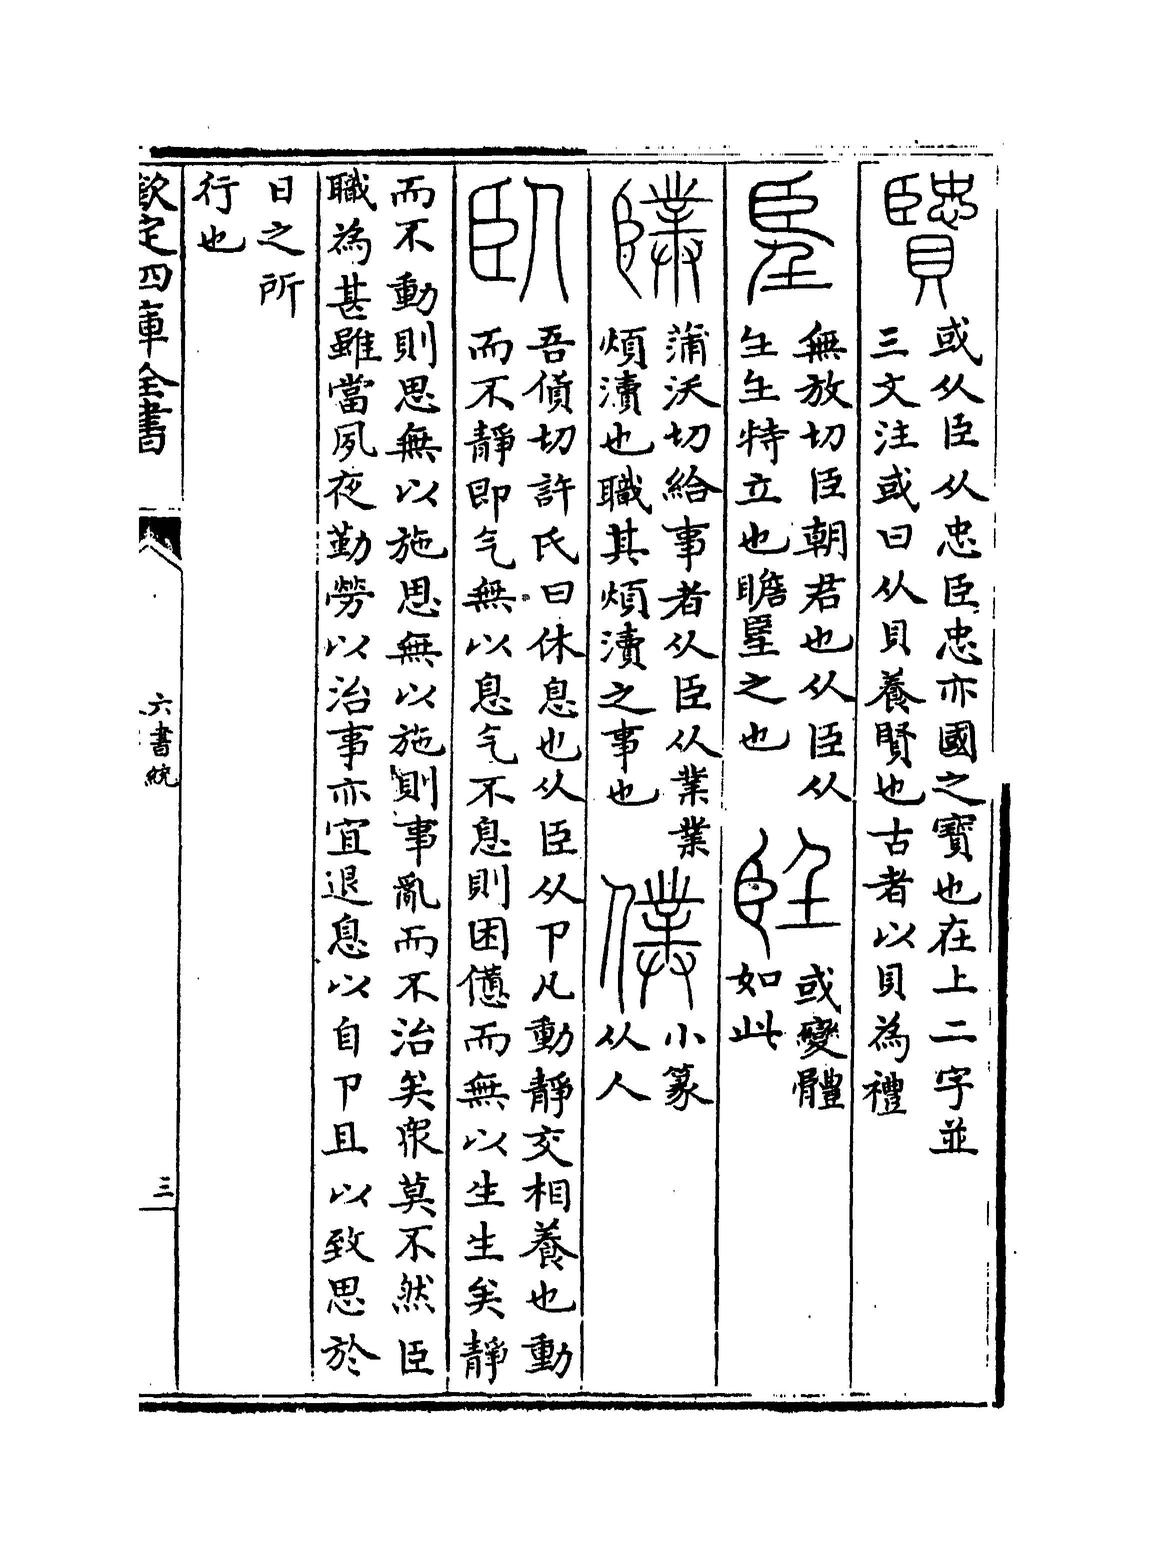 或从臣从忠臣忠亦國之寳也在上二字並
三文注或曰从貝養賢也古者以貝為禮
無放切臣朝君也从臣从
𡈼𡈼特立也瞻朢之也
或變體
如此
蒲沃切給事者从臣从業業
煩瀆也職其煩瀆之事也
小篆
从人
臥
吾偵切許氏曰休息也从臣从卪凡動靜交相養也動
而不靜即气無以息气不息則困憊而無以生生矣靜
而不動則思無以施思無以施則事亂而不治矣衆莫不然臣
職為甚雖當夙夜勤勞以治事亦宜退息以自卪且以致思於
日之所
行也
欽定四庫全書
六書統
三